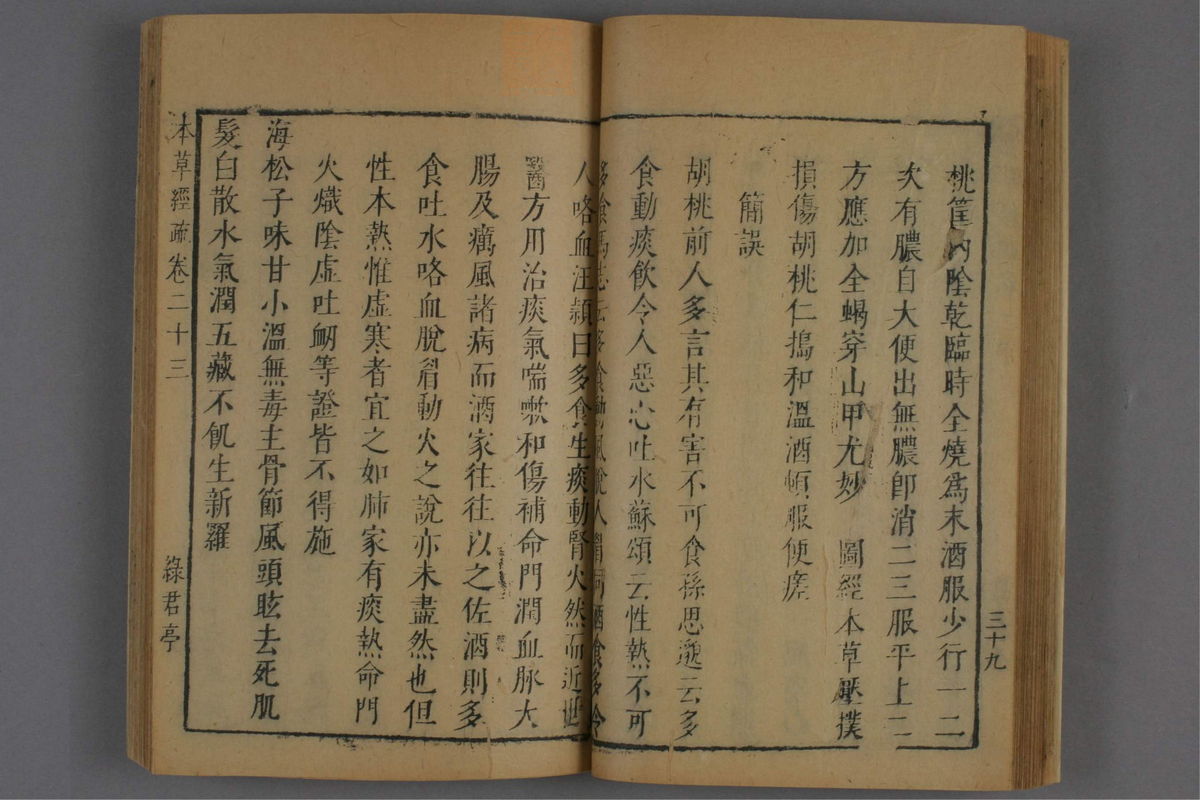 三十九
桃筐內陰乾臨時全燒爲末酒服少行一二
次有膿自大便出無膿卽消二三服平上二
方應加全蝎穿山甲尤妙 圖經本草壓撲
損傷胡桃仁搗和溫酒頓服便瘥
簡誤
胡桃前人多言其有害不可食孫思邈云多
食動痰飲令人惡心吐水蘇頌云性熱不可
多食馬志云多食動風脫人眉同酒食多令
人咯血汪穎曰多食生痰動腎火然而近世
醫方用治痰氣喘嗽和傷補命門潤血脉大
腸及癘風諸病而酒家往往以之佐酒則多
食吐水咯血脫眉動火之說亦未盡然也但
性本熱惟虛寒者宜之如肺家有痰熱命門
火熾陰虛吐衂等證皆不得施
海松子味甘小溫無毒主骨節風頭眩去死肌
髮白散水氣潤五藏不飢生新羅
本草經疏卷二十三
綠君亭